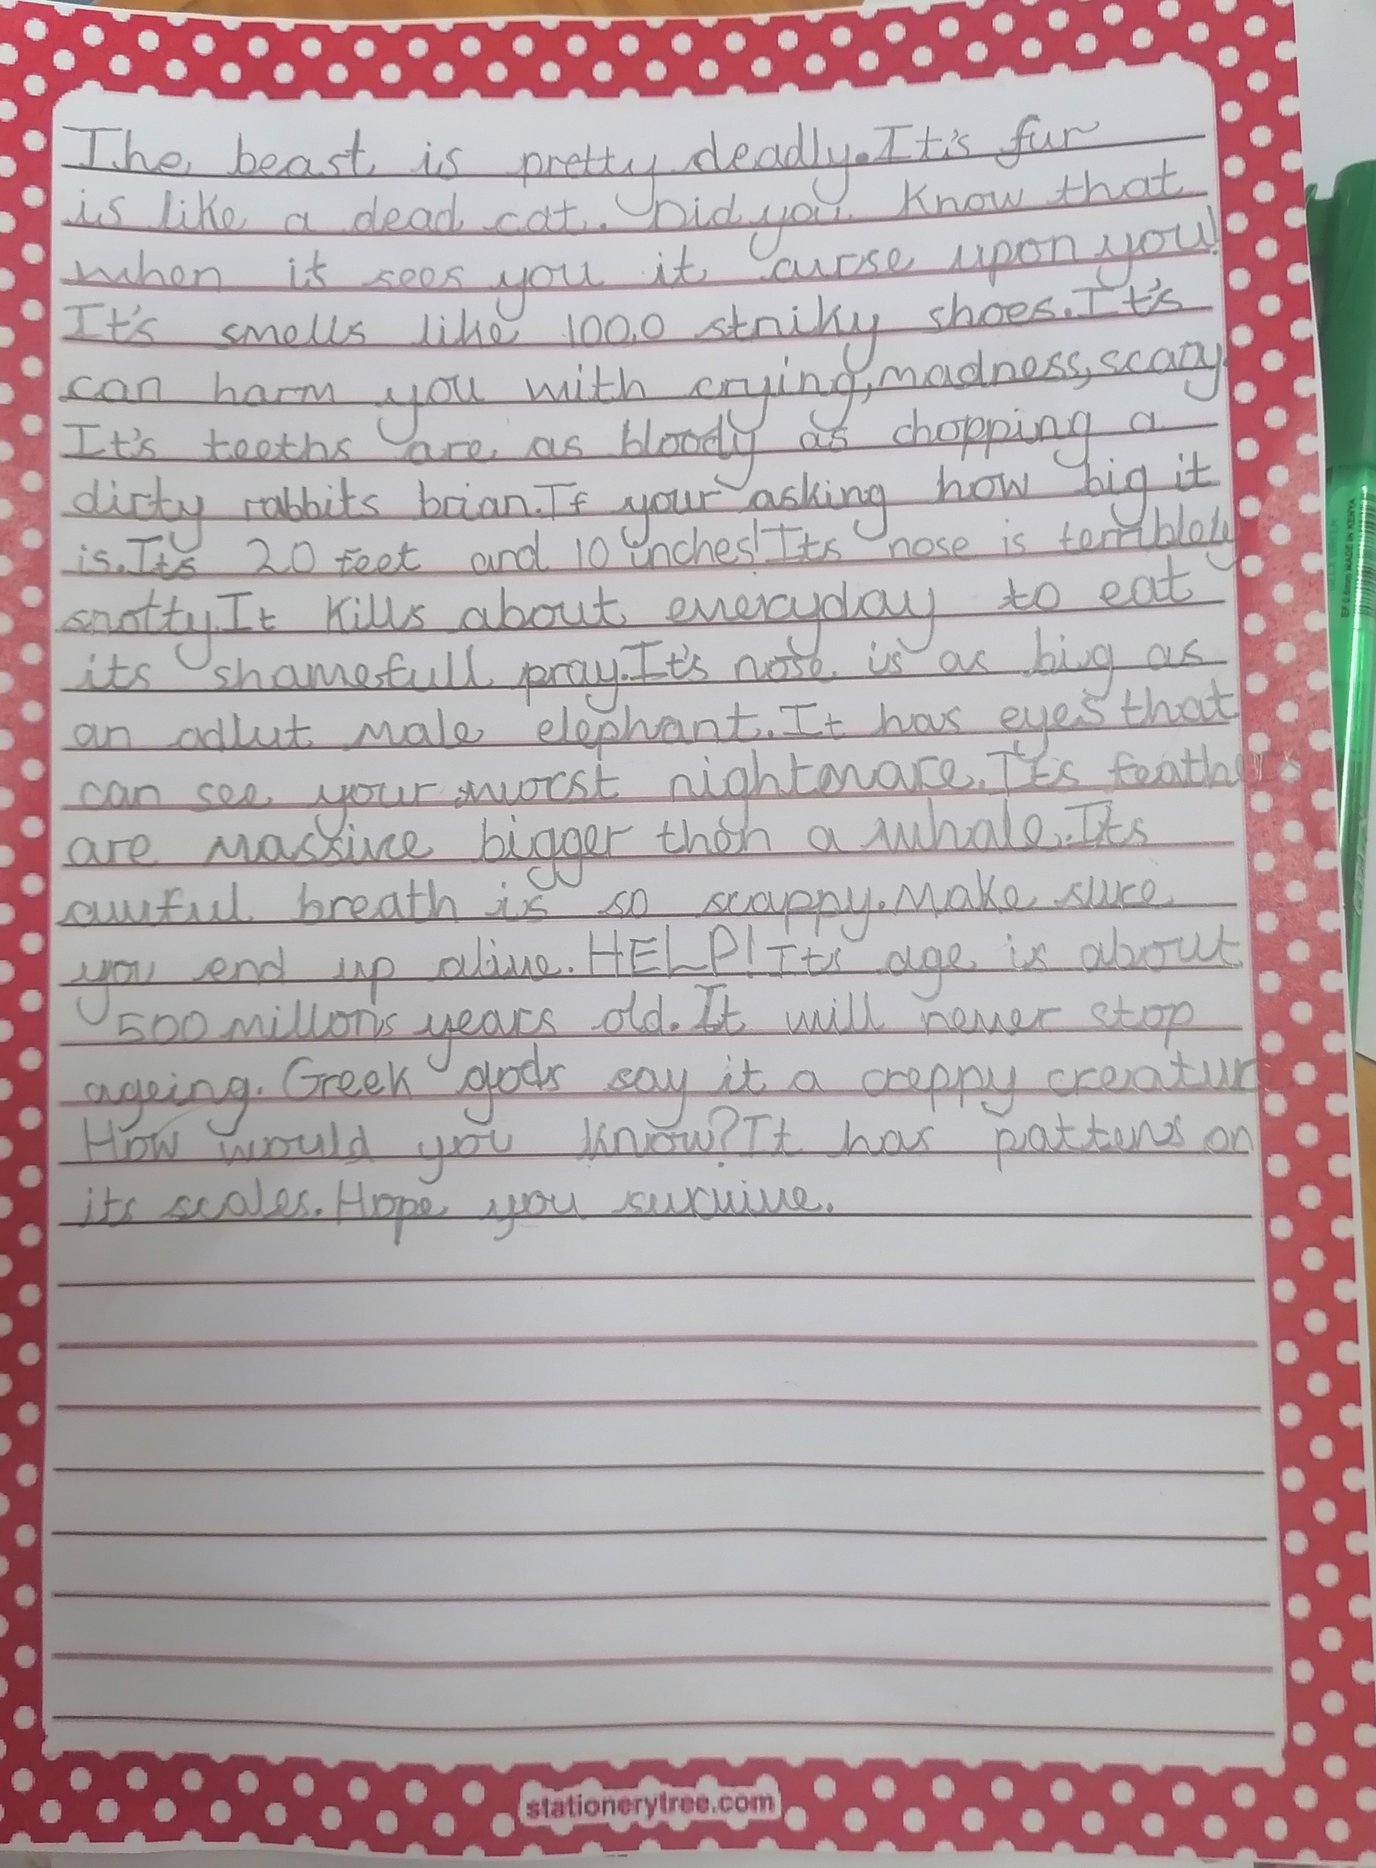 The beast is pretty deadly.It's fur
is like a dead cat. Did you know that
when it sees you it curse upon you!
It's smells like 1000 stniky shoes.It's
can harm you with crying,madness,scary.
It's teeths are as bloody as chopping a
dirty rabbits brian.If your asking how big it
is.Its 20 feet and 10 inches!Its nose is terriblely
snotty.It kills about everyday to eat
its shamefull pray.It's nose is as big as
an adlut male elephant.It has eyes that
can see your worst nightmare.It's feath
are massive bigger than a whale.Its
awful breath is so scappy.Make sure
you end up alive.HELP!Its age is about
500 millons years old.It will never stop
ageing.Greek gods say it a creppy creatur
How would you know?It has pattens on
its scales.Hope you survive.
stationerytree.com
MADE IN KENYA